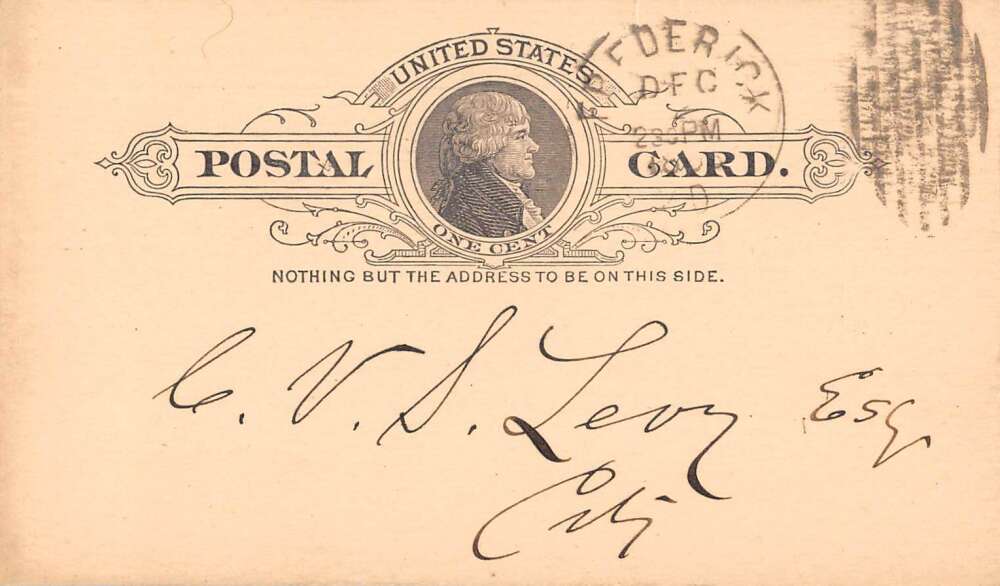 UNITED STATES
POSTAL CARD.
ONE CENT
NOTHING BUT THE ADDRESS TO BE ON THIS SIDE.
FREDERICK
DEC
230PM
D
C. V. S. Levy Esq.
City